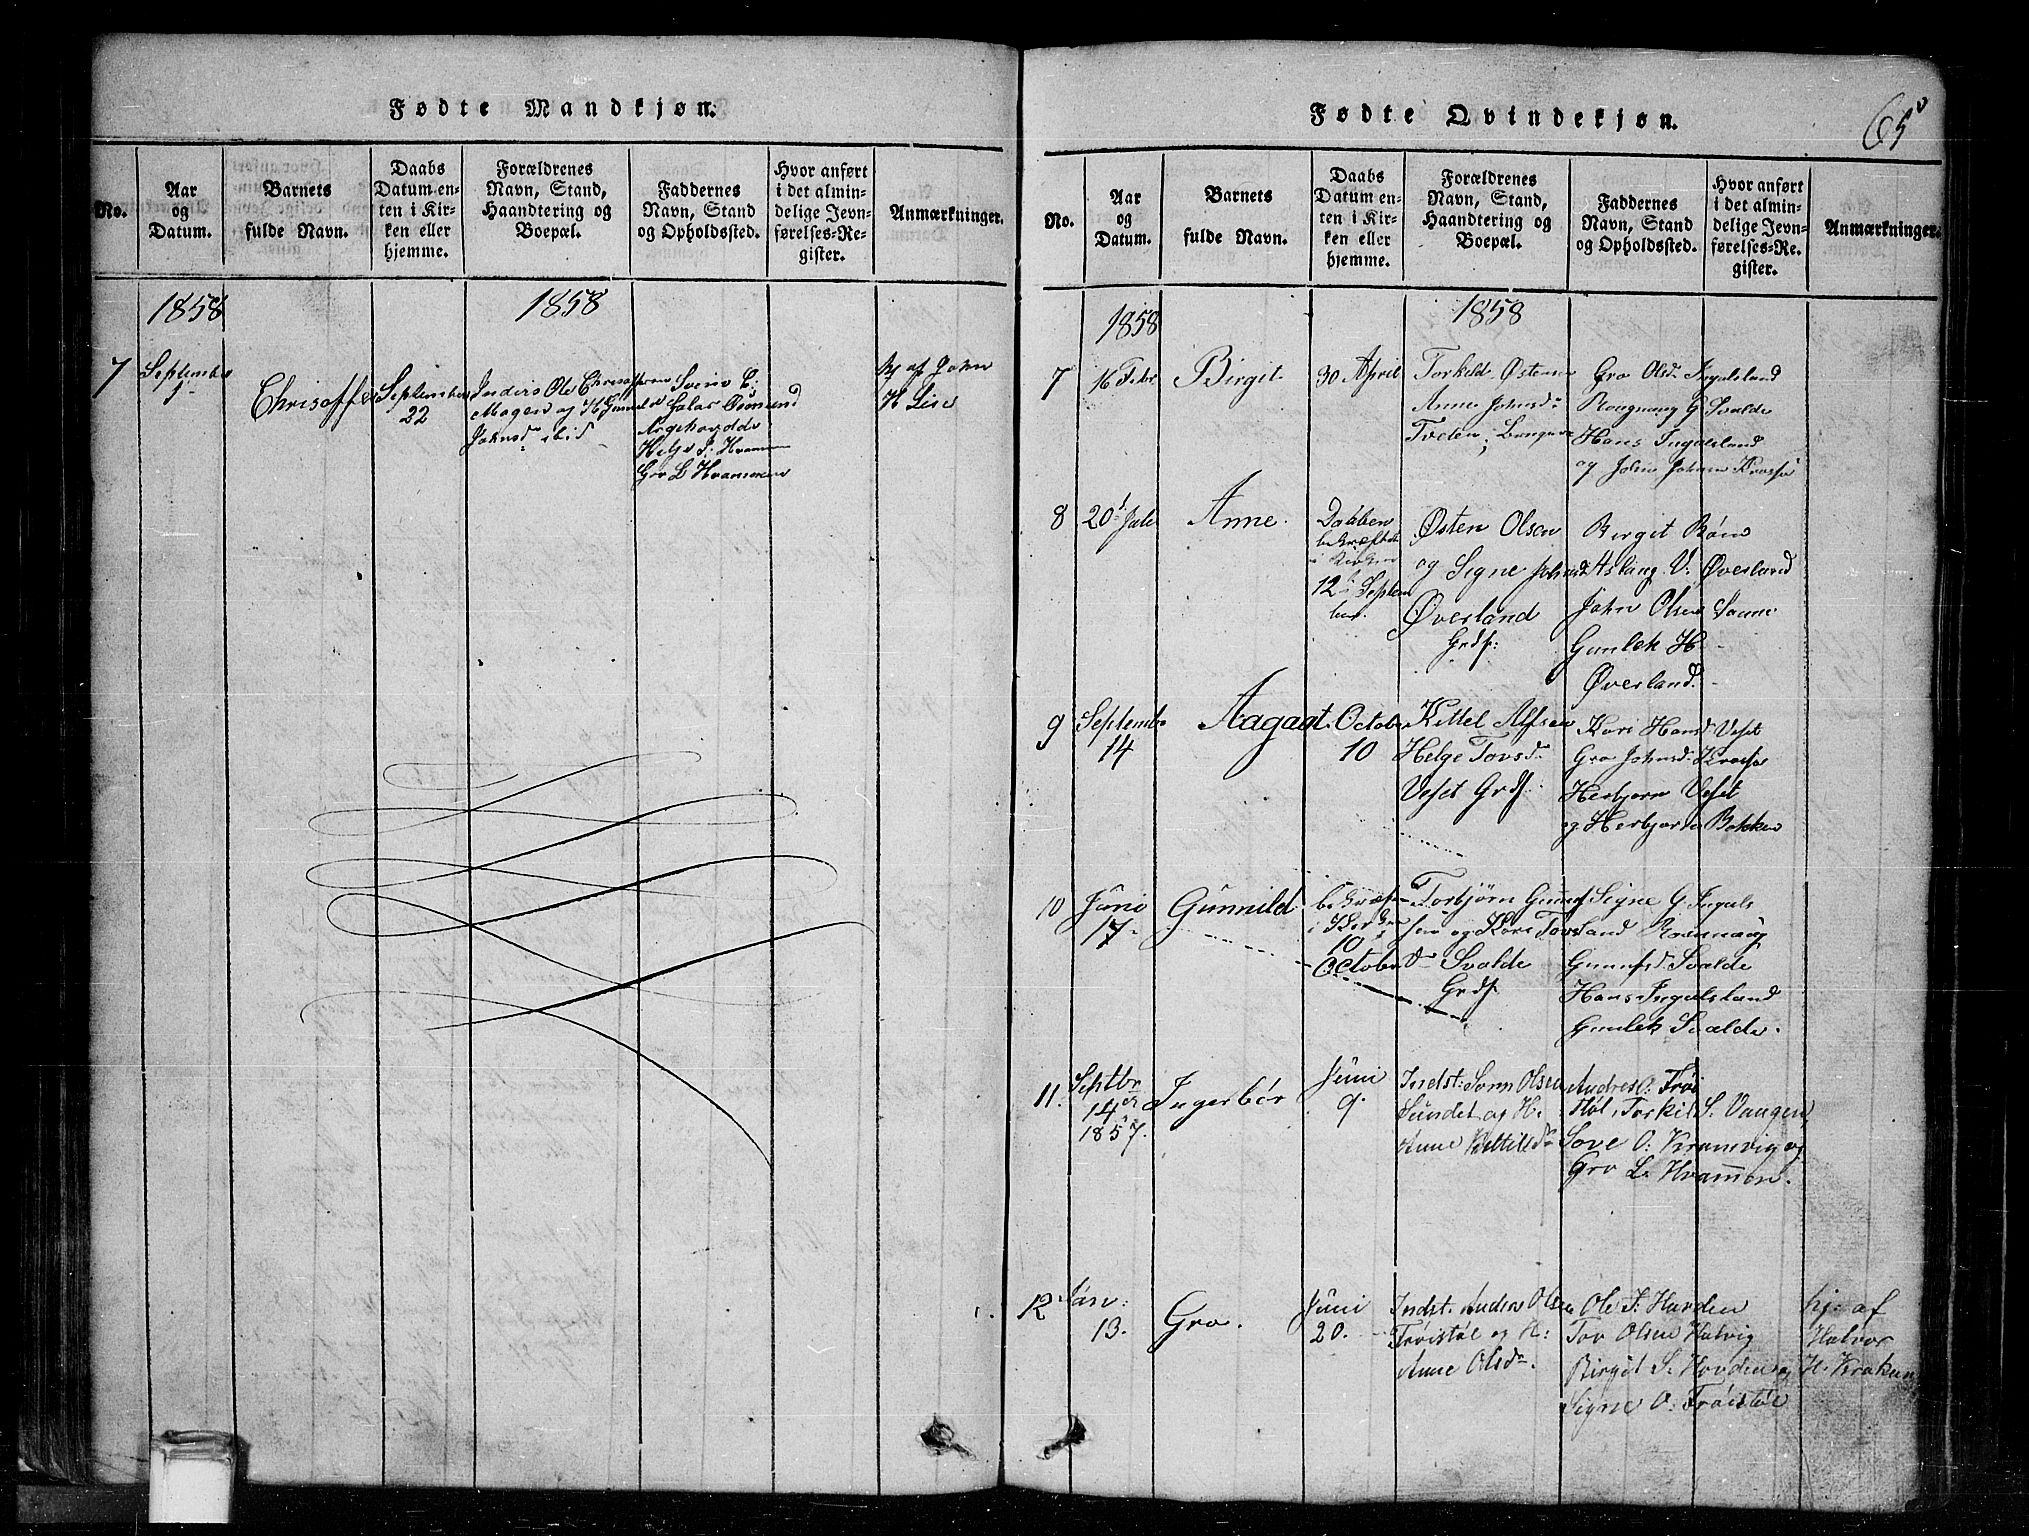 Fødte Mandkjøn.
No.
Aar
og
Datum.
Barnets
fulde Navn.
Daabs
Datum en-
ten i Kir-
ken eller
hjemme.
Forældrenes
Navn, Stand,
Haandtering og
Boepæl.
Faddernes
Navn, Stand
og Opholdssted.
Hvor anført
i det almin-
delige Jevn-
førelses-Re-
gister.
Anmærkninger.
1858
1858
7
September
1
Chrisoffer
September
22
Inders Ole Chrisoffersen
Mogen og H
Johnsd ibid
Svein E:
Aasmund
Argehovdde
Helje S: Hvammen
Gro L Hvammen
hj af John
H Lien
Fødte Qvindekjøn.
65
No.
Aar
og
Datum.
Barnets
fulde Navn.
Daabs
Datum en-
ten i Kir-
ken eller
hjemme.
Forældrenes
Navn, Stand,
Haandtering og
Boepæl.
Faddernes
Navn, Stand
og Opholdssted.
Hvor anført
i det almin-
delige Jevn-
førelses-Re-
gister.
Anmærkninger.
1858
1858
7
16 Febr
Birgit
30 April
Torkild Østensen
Anne Johnsd
Tveten
Gro Olsd Ingulsland
Rougnaug G Svalde
Hans Ingulsland
og John Johnsen Krosso
8
20 Juli
Anne.
Daaben
bekræftet
i Kirken
12 Septem
ber.
Østen Olsen
og Signe Johnsd
Øverland
Grdf:
Birget Bøen
Aslaug V: Øverland
John Olsen Samme
Gunlek H
Øverland.
9
Septembr
14
Aagaat
October
10
Kittel Alfsen
Helge Tovsd
Veset Grdf
Kari Hansd Veset
Gro Johnsd Krosso
Herbjørn Veset
og Herbjørn Bakken
10
Juni
17
Gunnild
bekræft
i Kirken
10
October
Torbjørn Gunuf
sen og Kari Tovs
d Svalde
Grdf
Signe G Inguls
land Rounnaug
Gunufsd Svalde
Hans Ingulsland
Gunlek Svalde.
11.
Septbr
14
1857.
Ingerbör
Juni
9.
Indst: Sven Olsen
Sundet og H.
Anne Kettilsd
Andres O: Tröi
stöl, Torkil S. Vaagen
Sove O: Kramvig og
Gro L. Hvammen.
12
Janv:
13.
Gro.
Juni
20.
Indst. Anders Olsen
Tröistöl og H:
Anne Olsd.
Ole S: Hovden
Tov Olsen Halvig
Birgit S. Hovden og
Signe O: Tröistöl
hj: af
Halvor
H. Kroken